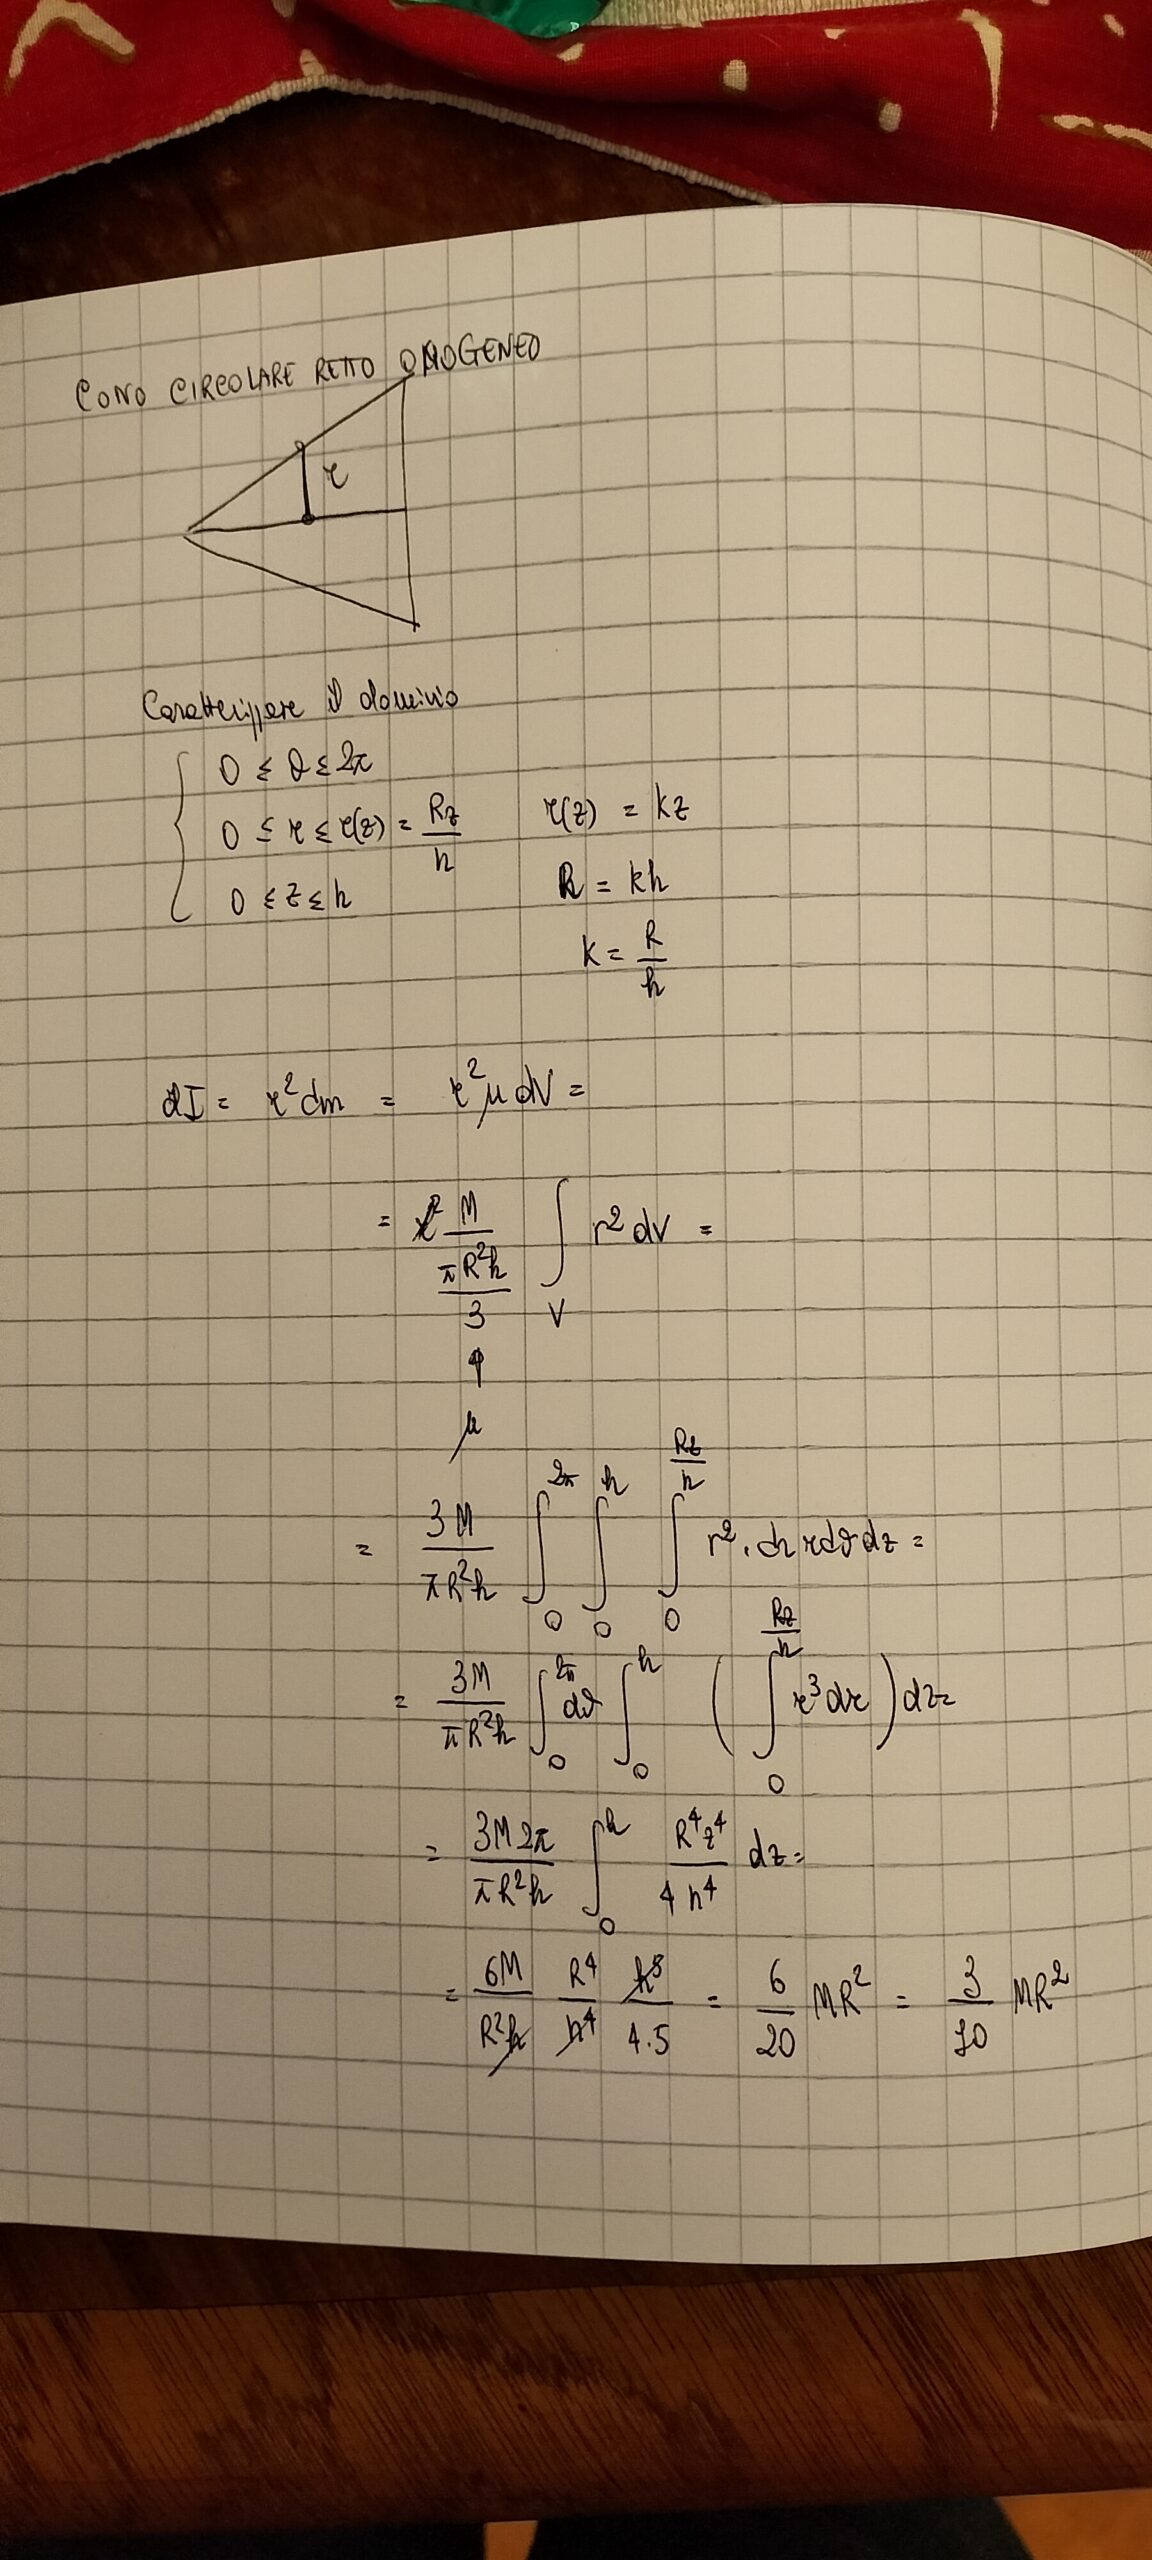 CONO CIRCOLARE RETTO OMOGENEO
r
Caratterizzare il dominio
0 ≤ θ ≤ 2π
0 ≤ r ≤ r(z) = Rz/h    r(z) = kz
0 ≤ z ≤ h    R = kh
k = R/h
dI = r² dm = r² μ dV =
= M/(πR²h/3) ∫_V r² dV =
↑
μ
= 3M/(πR²h) ∫_0^{2π} ∫_0^h ∫_0^{Rz/h} r² · dr r dθ dz =
= 3M/(πR²h) ∫_0^{2π} dθ ∫_0^h ( ∫_0^{Rz/h} r³ dr ) dz =
= 3M2π/(πR²h) ∫_0^h R⁴z⁴/(4h⁴) dz =
= 6M/(R²h) R⁴/h⁴ h⁵/(4·5) = 6/20 MR² = 3/10 MR²